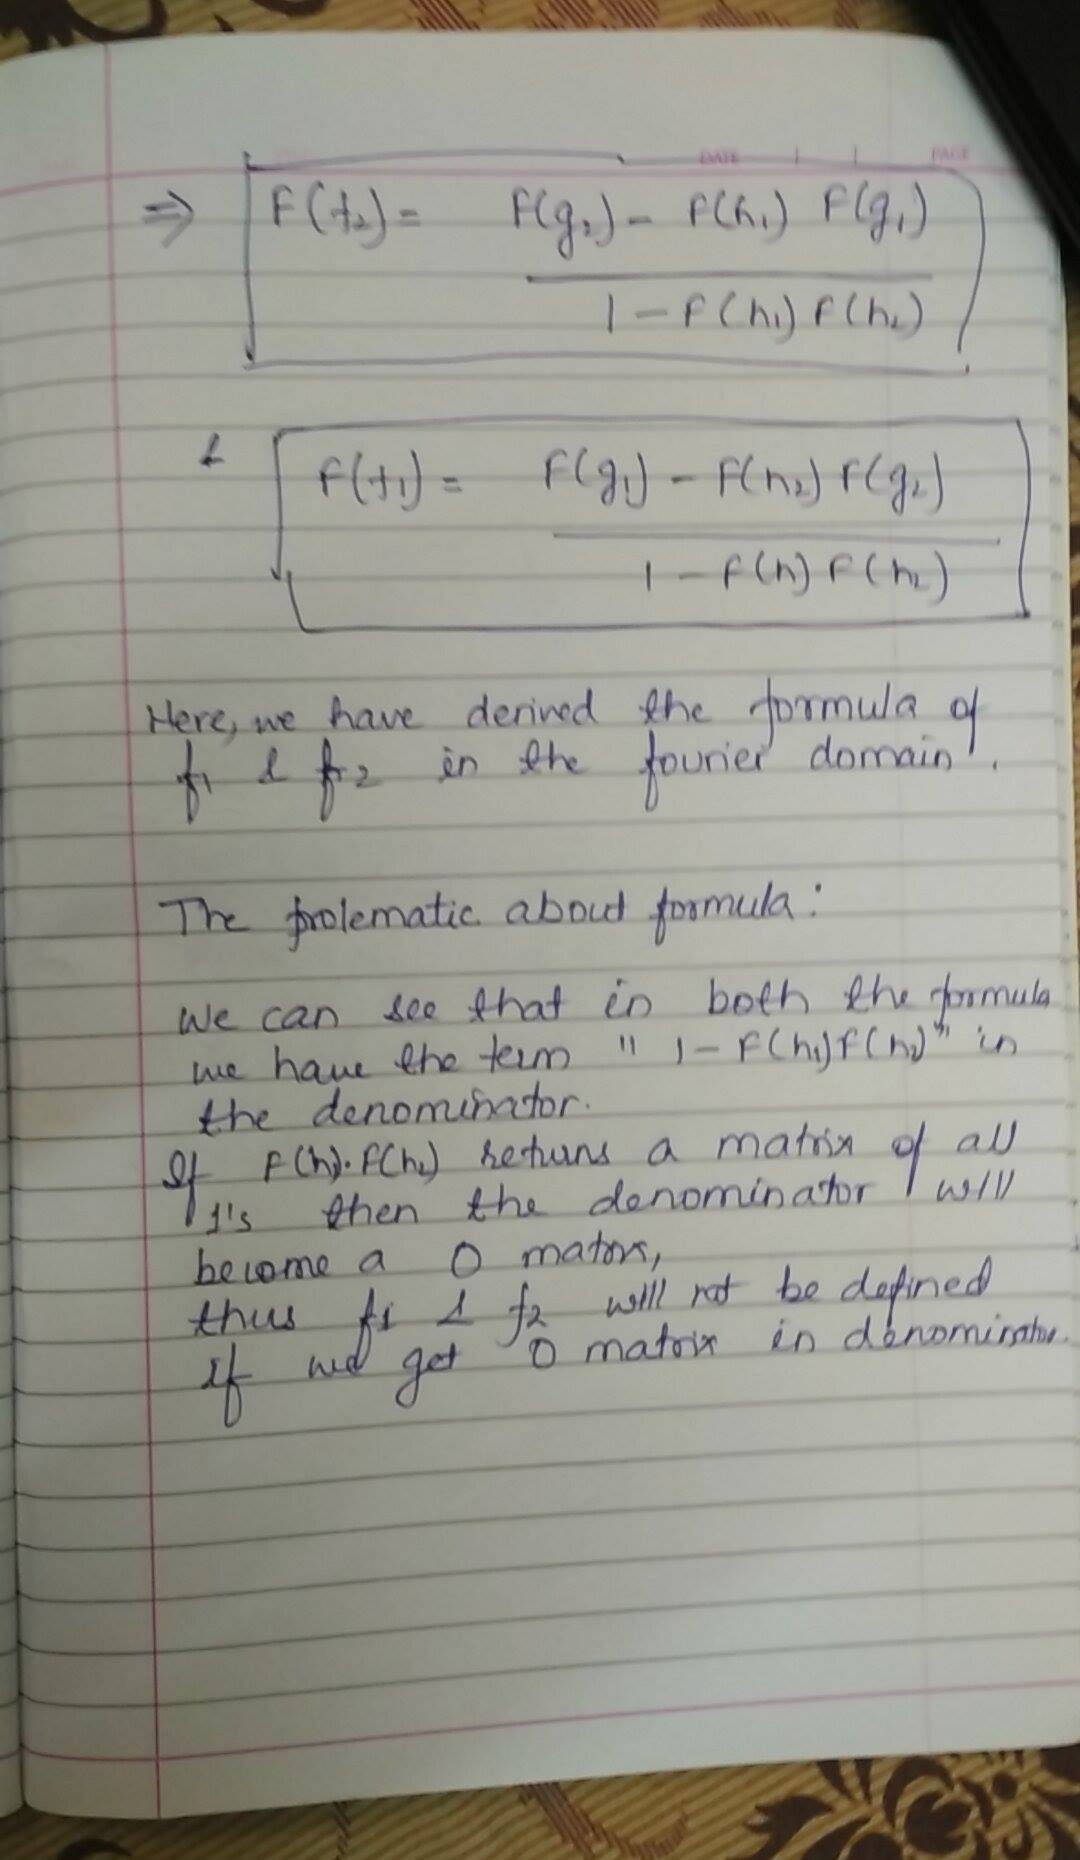 DATE PAGE
⇒ F(f₂) = F(g₂) - F(h₁) F(g₁)
1 - F(h₁) F(h₂)
& F(f₁) = F(g₁) - F(h₂) F(g₂)
1 - F(h) F(h₂)
Here, we have derived the formula of
f₁ & f₂ in the fourier domain.
The prolematic about formula:
We can see that in both the formula
we have the term "1 - F(h₁)F(h₂)" in
the denominator.
If F(h₁).F(h₂) returns a matrix of all
1's then the denominator will
become a 0 matrix,
thus f₁ & f₂ will not be defined
if we get 0 matrix in denominator.